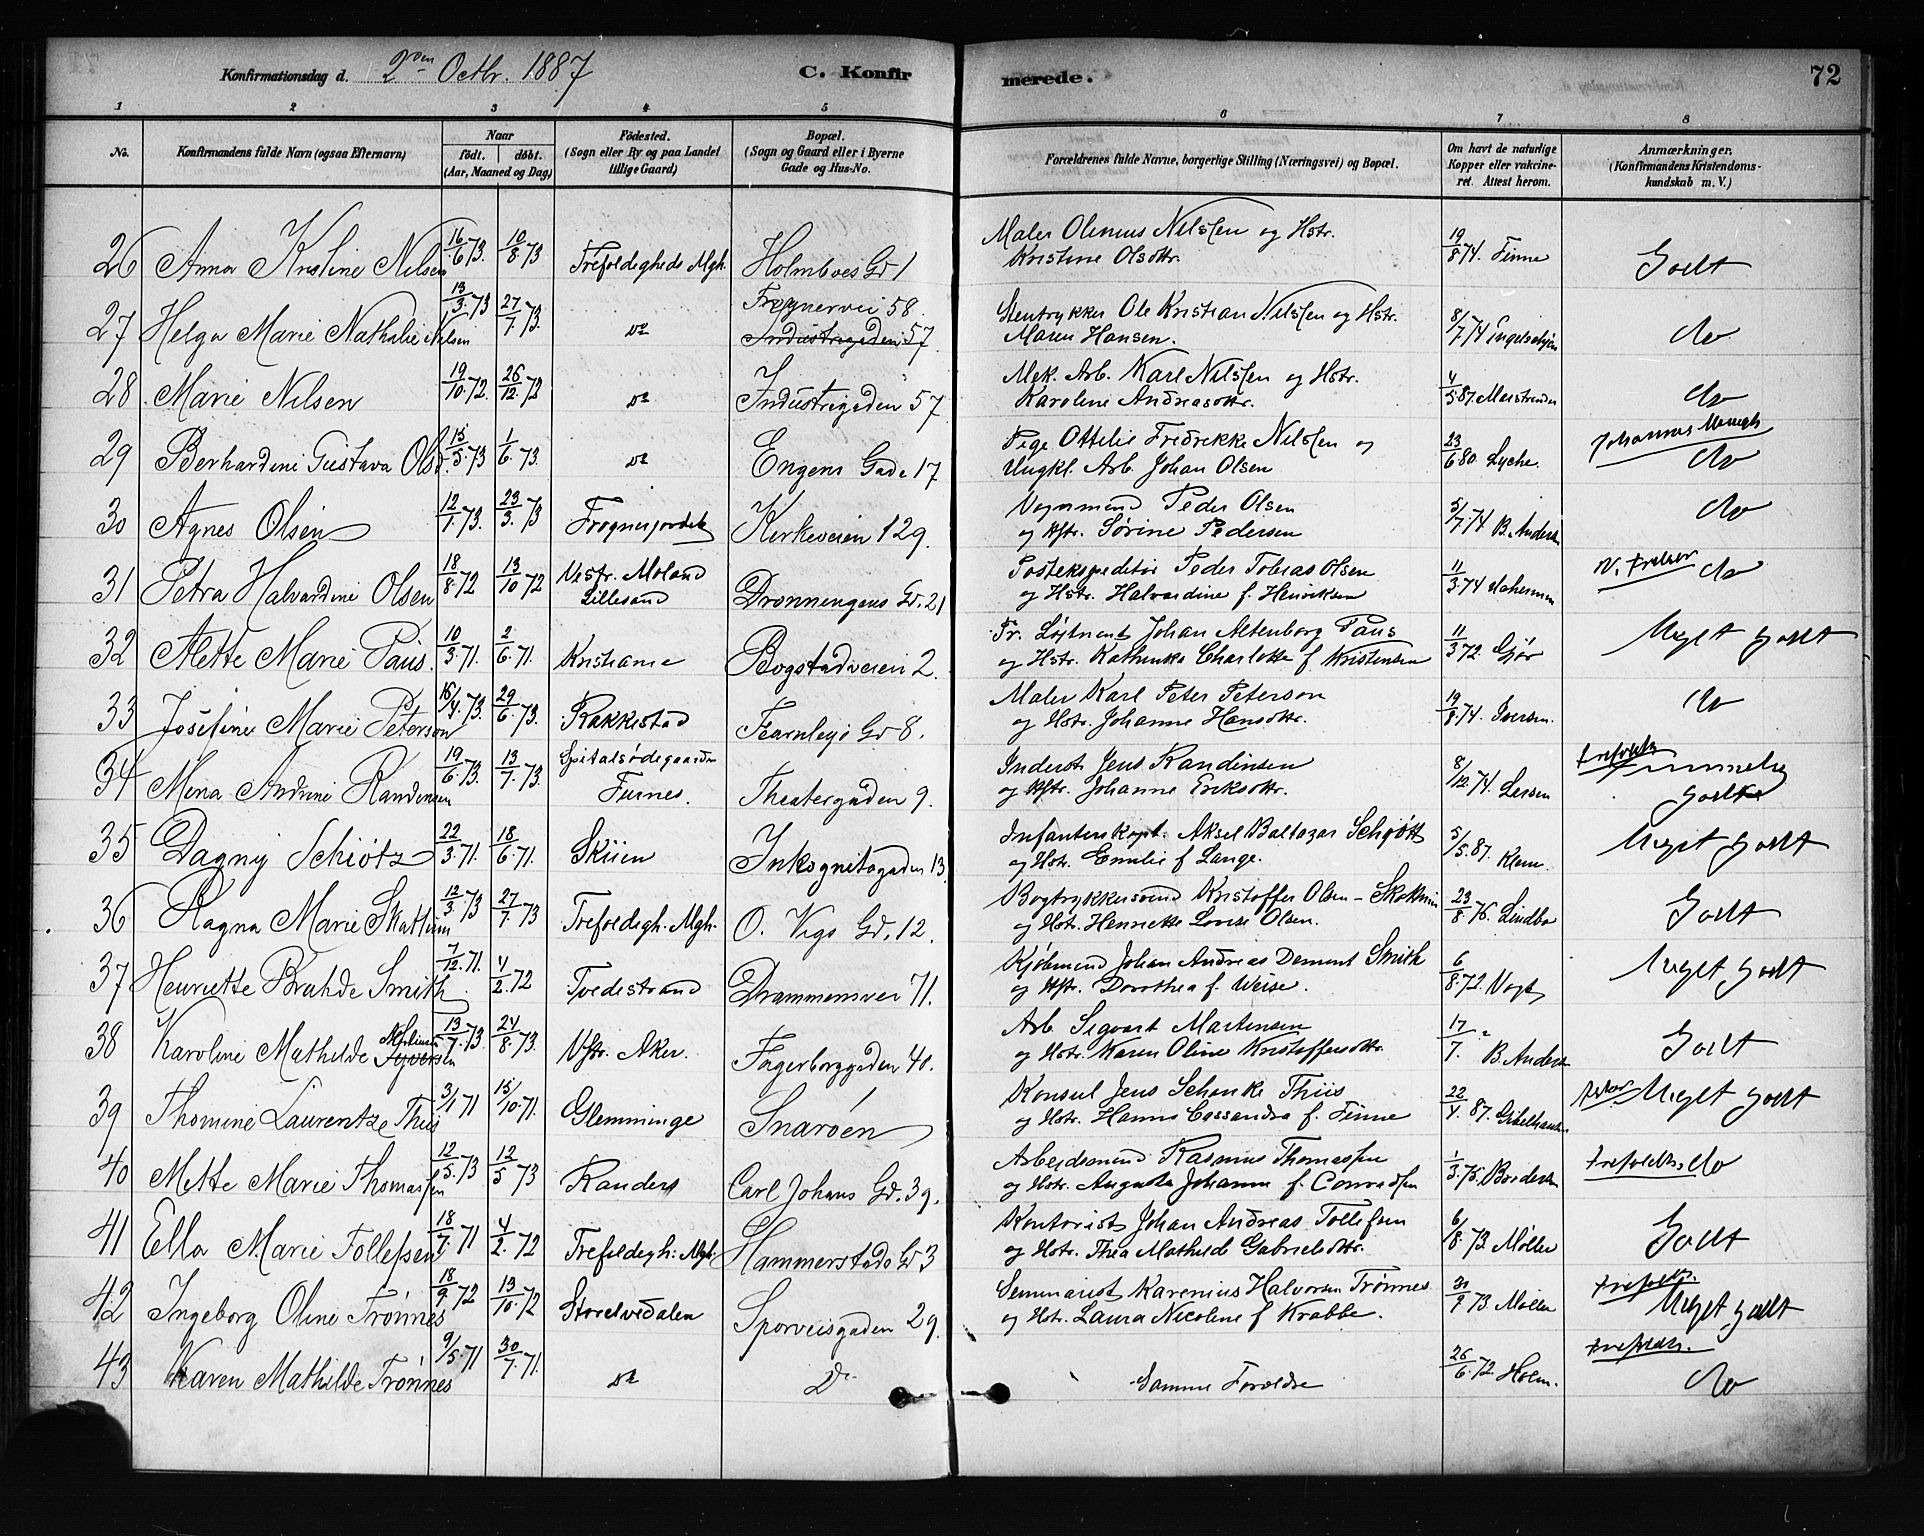 Konfirmationsdag d. 2den Octbr. 1887 C. Konfirmerede. 72
1 2 3 4 5 6 7 8
No. Konfirmandens fulde Navn (ogsaa Efternavn) Naar født. døbt. (Aar, Maaned og Dag) Fødested. (Sogn eller By og paa Landet tillige Gaard) Bopæl. (Sogn og Gaard eller i Byerne Gade og Hus-No. Forældrenes fulde Navne, borgerlige Stilling (Næringsvei) og Bopæl. Om havt de naturlige Kopper eller vakcineret. Attest herom. Anmærkninger, (Konfirmandens Kristendomskundskab m. V.)
26 Anna Kristine Nilsen 16/6 73. 10/8 73 Trefoldigheds Mgh. Holmboes Gd 1 Maler Olenius Nilssen og Hstr. Kristine Olsdttr. 19/8 74. Finne Godt
27 Helga Marie Nathalie Nilsen 13/3. 73 27/7. 73. do Frognervei 58. Industrigaden 57 Stentrykker Ole Kristian Nilssen og Hstr. Maren Hansen. 8/7 74 do
28 Marie Nilsen 19/10. 72. 26/12. 72 do Industrigaden 57 Mgk. Arb. Karl Nilssen og Hstr. Karoline Andreasdttr. 4/5 87. do
29 Berhardine Gustava Olsen 15/5. 73 1/6. 73. do Engens Gade 17 Pige Ottilie Fredrekke Nilssen og Ungkl. Arb. Johan Olsen 23/6 80. Lyche. Johannes Menigh do
30 Agnes Olsen 12/1. 73. 23/3. 73 Frognerjordet Kirkeveien 129. Vognmand Peder Olsen og Hstr. Sørine Pedersen 5/7 74 B. Andersen do
31 Petra Halvardine Olsen 18/8 72 13/10 72 Vestr. Moland Lillesand Dronningens Gd. 21 Postekspeditør Peder Tobias Olsen og Hstr. Halvardine f. Henriksen 11/3. 74 do
32 Alette Marie Paus. 10/3. 71. 2/6. 71. Kristiania Bogstadveien 2. Pr. Løjtnant Johan Altenborg Paus og Hstr. Kathinka Charlotte f. Kristensen 11/3 72. Gjør Meget godt
33 Josefine Marie Peterson 16/4. 73. 29/6. 73. Rakkestad Fearnleys Gd 8. Maler Karl Peter Peterson og Hstr. Johanne Hansdttr. 19/8. 74. Iversen. do
34 Mina Andrine Randinsen 19/6. 73. 13/7. 73. Spitalsødegaarden Furnes. Theatergaden 9. Inderst Jens Randinsen og Hstr. Johanne Eriksdttr. 8/12. 74. Larsen Trefoldh. godt
35 Dagny Schiøtz 22/3. 71. 18/6. 71. Skiien Inkognitogaden 13. Infanterikapt. Aksel Baltazar Schjøtt og Hstr. Emilie f Lange. 5/5. 87. Meget godt
36 Ragna Marie Skattum 12/3. 73 27/7. 73 Trefoldigh. Mgh. O. Vigs Gd. 12. Bogtrykkersvend Kristoffer Olsen - Skattum og Hstr. Henriette Lovise Olsen. 23/8 76. Lindboe Godt
37 Henriette Bruhde Smith. 7/12. 71. 4/2. 72 Tvedestrand Drammensvei 71. Kjøbmand Johan Andreas Dement Smith og Hstr. Dorothea f. Weise. 6/8. 72. Vogt Meget godt
38 Karoline Mathilde Syversen 13/7. 73. 24/8. 73. Vstr. Aker. Fagerborggaden 40. Arb. Sigvart Martensen og Hstr. Karen Oline Kristoffersdttr. 17/7. B. Andersen Godt
39 Thomine Laurentze Thiis 3/1 71 15/10. 71. Glemminge Snarøen Konsul Jens Schanke Thiis og Hstr. Hanna Cassandra f. Finne 22/4. 87. Meget godt
40 Mette Marie Thomassen 12/5. 73 12/5 73 Randers Carl Johans Gd. 39. Arbejdsmand Rasmus Thomassen og Hstr. Augusta Johanne f. Conradsen 1/3. 75. Trefoldh. do
41 Ella Marie Tollefsen 18/7. 71 4/2. 72 Trefoldigh. Mgh. Hammerstads Gd 3 Kontorist Johan Andreas Tollefsen og Hstr. Thea Mathilde Gabrielsdttr. 6/8. 73 Møller Godt
42 Ingeborg Oline Trønnes 18/9. 72 13/10. 72 Storelvedalen Sporveisgaden 29. Seminarist Karenius Halvorsen Trønnes og Hstr. Laura Nicoline f Krabbe. 30/9 73. Møller Trefoldh. Meget godt
43 Karen Mathilde Trønnes 9/5. 71 30/7. 71. do do Samme Forældre 26/6. 72. Holm. Trefoldh. do